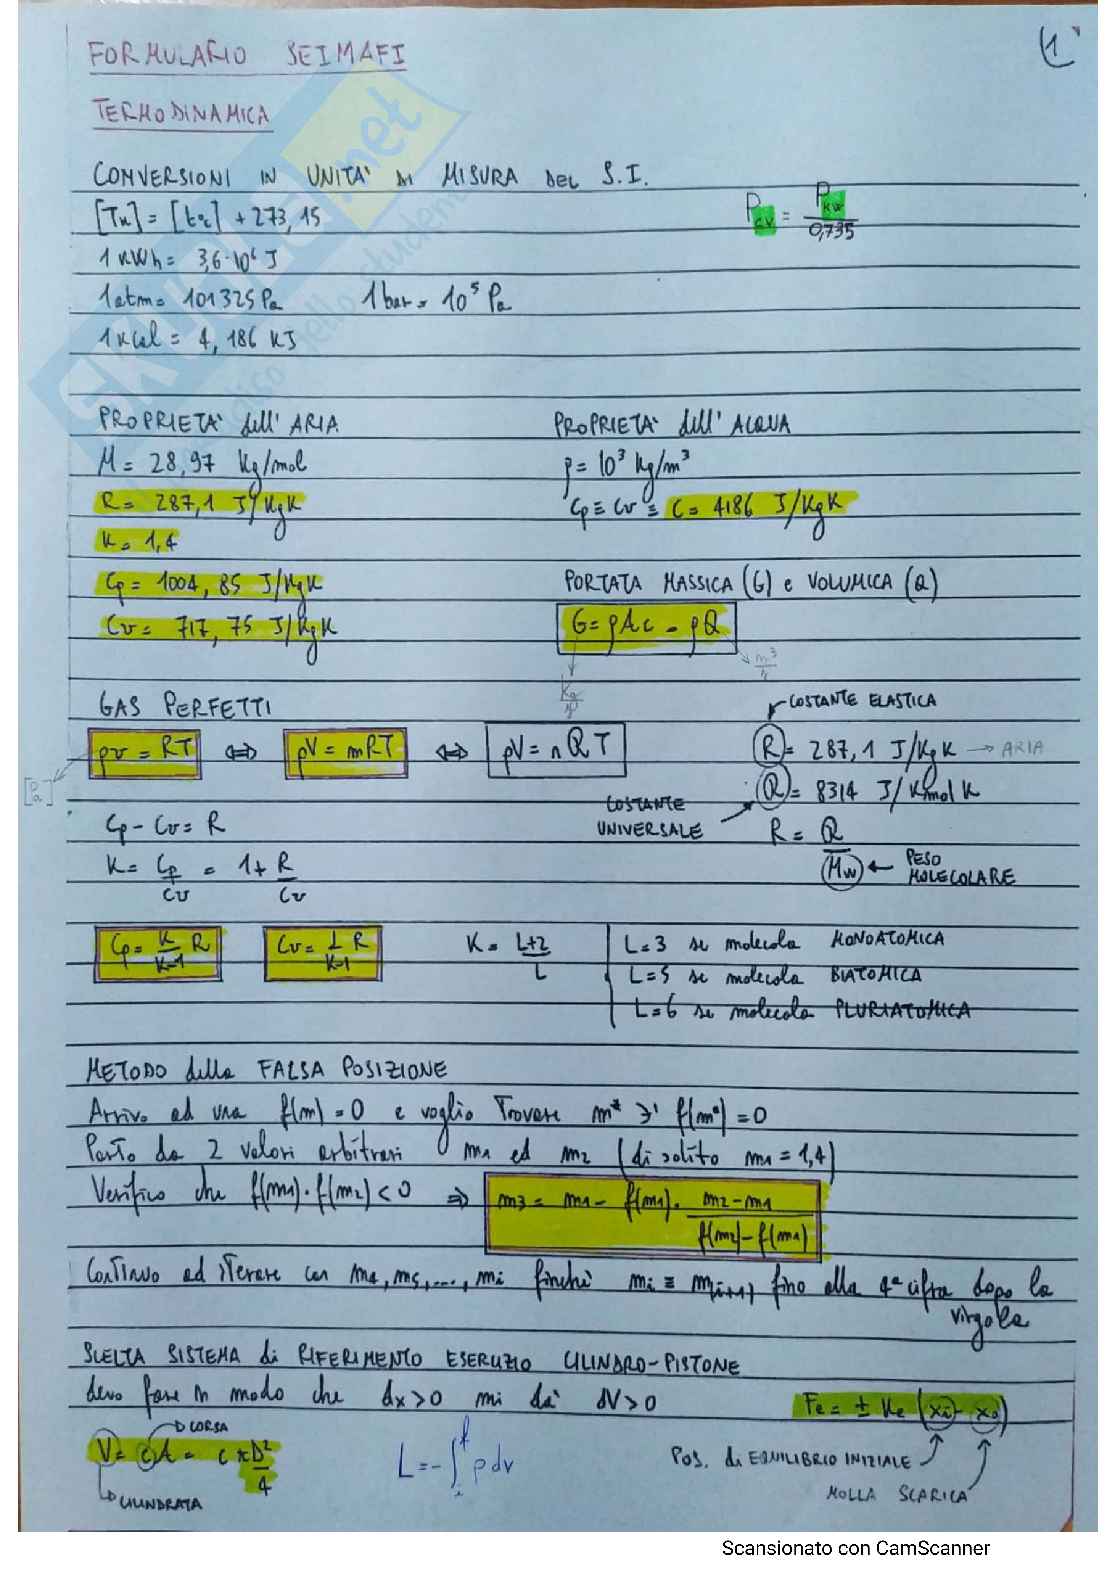 FORMULARIO SEIMAFI
1
TERMODINAMICA
CONVERSIONI IN UNITA' DI MISURA DEL S.I.
[TK] = [t°C] + 273,15
PCV = PKW / 0,735
1 KWh = 3,6·10⁶ J
1 atm = 101325 Pa 1 bar = 10⁵ Pa
1 Kcal = 4,186 KJ
PROPRIETA' dell'ARIA
M = 28,97 Kg/mol
R = 287,1 J/KgK
K = 1,4
Cp = 1004,85 J/KgK
Cv = 717,75 J/KgK
PROPRIETA' dell'ACQUA
ρ = 10³ Kg/m³
Cp ≡ Cv ≡ C = 4186 J/KgK
PORTATA MASSICA (G) e VOLUMICA (Q)
G = ρAc = ρQ
Kg/s
m³/s
GAS PERFETTI
pv = RT ⇔ pV = mRT ⇔ pV = nRT
[Pa]
COSTANTE ELASTICA
R = 287,1 J/KgK → ARIA
R = 8314 J/Kmol K
COSTANTE UNIVERSALE
R = R / Mw ← PESO MOLECOLARE
Cp - Cv = R
K = Cp/Cv = 1 + R/Cv
Cp = K/(K-1) R Cv = 1/(K-1) R K = (L+2)/L
L = 3 se molecola MONOATOMICA
L = 5 se molecola BIATOMICA
L = 6 se molecola PLURIATOMICA
METODO della FALSA POSIZIONE
Arrivo ad una f(m) = 0 e voglio Trovare m* ∋' f(m*) = 0
Parto da 2 valori arbitrari m1 ed m2 (di solito m1 = 1,4)
Verifico che f(m1)·f(m2) < 0 ⇒ m3 = m1 - f(m1)· (m2 - m1)/(f(m2) - f(m1))
Continuo ad iterare con m4, m5, ..., mi finchè mi ≡ m(i+1) fino alla 4ª cifra dopo la
virgola
SCELTA SISTEMA di RIFERIMENTO ESERCIZIO CILINDRO-PISTONE
devo fare in modo che dx>0 mi dà dV>0
Fe = ± Ke (xi - x0)
CORSA
V = cA = c πD²/4
CILINDRATA
L = -∫ᵢᶠ p dv
POS. di EQUILIBRIO INIZIALE
MOLLA SCARICA
skuola.net
Scansionato con CamScanner